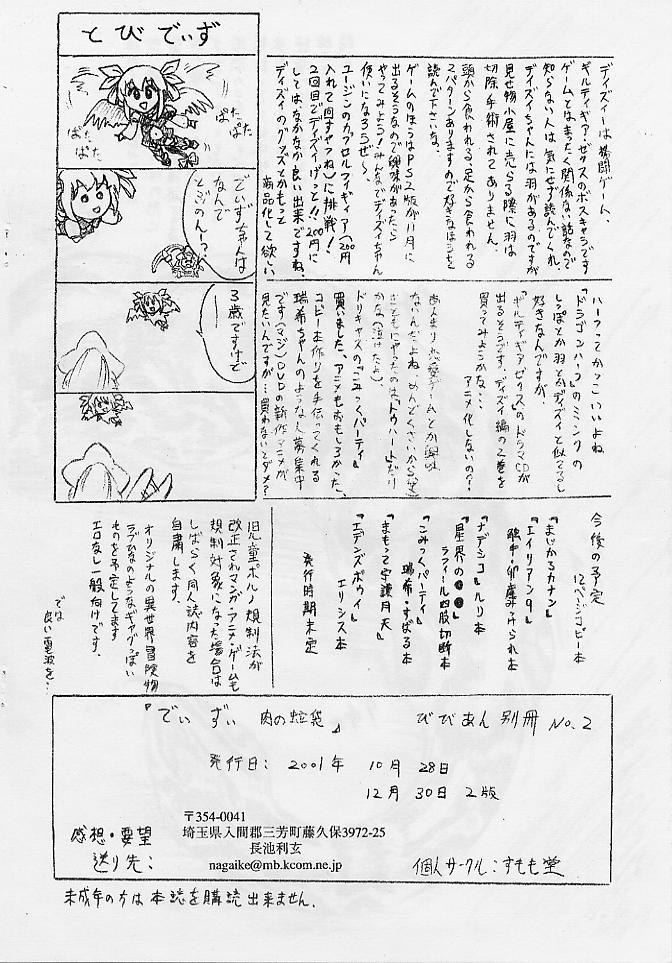 とびでぃず
ぱた
ぱた
ぱた
ぱた
でぃずちゃんは
なんで
とぶのん～?
3歳ですけど
ディズィーは格闘ゲーム、
ギルティギア・ゼクスのボスキャラです
ゲームとはまったく関係ない話なので
知らない人は気にせず読んでくれ
ディズィちゃんには羽があるのですが
見せ物小屋に売らる際に羽は
切除手術されてありません。
頭から食われる、足から食われる
2パターンありますので好きなほうを
読んで下さいな。
ゲームのほうはPS2版が11月に
出るそうなので興味があったら
やってみよう!みんなでディズィちゃん
使いになろうぜ～
ユージンのカプセルフィギュア(200円
入れて回すやつね)に挑戦!
2回目でディズィげっと!!200円に
してはなかなか良い出来ですね。
ディズィのグッズとかもっと
商品化して欲しい。
ハーフってかっこいいよね
『ドラゴンハーフ』のミンクの
しっぽとか羽とかディズィと似てるし
好きなんですが、
『ギルティギアゼクス』のドラマCDが
出るそうです。ディズィ編の2巻を
買ってみようかな…
アニメ化しないの?
あんまり恋愛ゲームとか興味
ないんだよね、めんどくさいから(笑)
まともにやったのはトゥハートだけ
かな(泣けたよ)
ドリキャスの『こみっくパーティ』
買いました、アニメもおもしろかった。
コピー本作りを手伝ってくれる
瑞希ちゃんのような人募集中
です(マジ)DVDの新作アニメが
見たいんですが…買わないとダメ?
今後の予定
12ページコピー本
『まじかるカナン』
『エイリアン9』
『ナデシコ』ルリ本
『星界の●●』
ラフィール四股切断本
『こみっくパーティ』
瑞希・すばる本
『まもって守護月天』本
『エデンズボゥイ』
エリシス本
発行時期未定
児童ポルノ規制法が
改正されマンガ・アニメ・ゲームも
規制対象になった場合は
しばらく同人誌内容を
自粛します。
オリジナルの異世界冒険物
ラブひなのようなギャグっぽい
ものを予定してます
エロなし一般向けです。
では
良い電波を…
『でぃずぃ 肉の蛇袋』 びびあん別冊 No.2
発行日: 2001年 10月 28日
12月 30日 2版
〒354-0041
感想・要望
埼玉県入間郡三芳町藤久保3972-25
長池利玄
送り先:
nagaike@mb.kcom.ne.jp
個人サークル:すもも堂
未成年の方は本誌を購読出来ません.